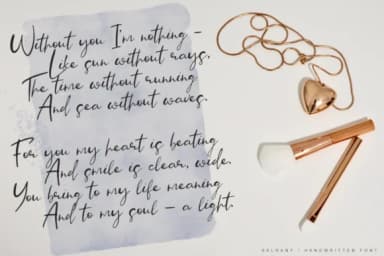 Without you I'm nothing –
Like sun without rays,
The time without running
And sea without waves.
For you my heart is beating
And smile is clear, wide.
You bring to my life meaning
And to my soul – a light.